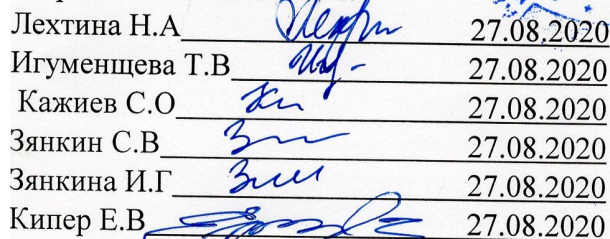 Лехтина Н.А 27.08.2020
Игуменщева Т.В 27.08.2020
Кажиев С.О 27.08.2020
Зянкин С.В 27.08.2020
Зянкина И.Г 27.08.2020
Кипер Е.В 27.08.2020